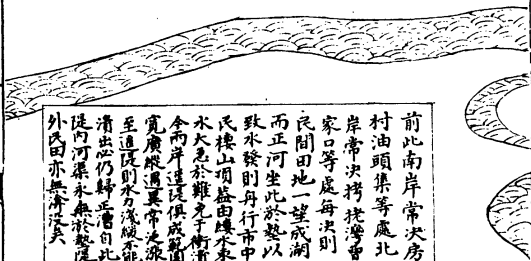 前此南岸常决房
村油頭集等處北
岸常决栲栳灣曹
家口等處每决則
民間田地一望成湖
而正河坐此於墊以
致水發則舟行市中
民棲山頂益由縷水束
水太急於難免于衝潰
今兩岸遥堤俱成範圍
寬廣縱遇異常泛漲
至遥堤則水力淺緩不能
潰出必仍歸正漕自此
堤内河渠永無於墊堤
外民田亦無渰没矣